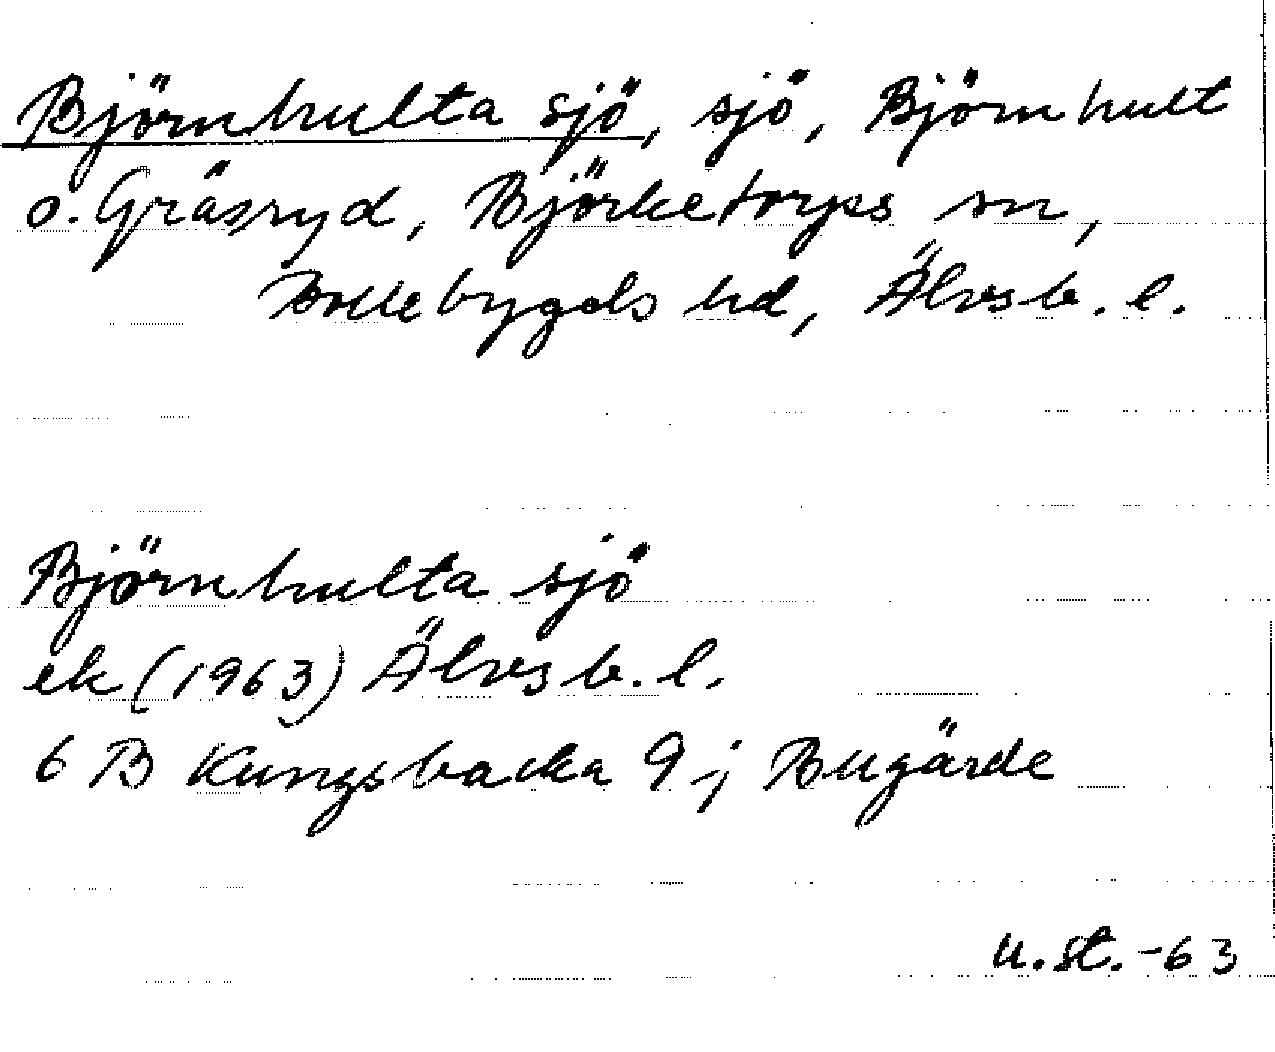 Björnhulta sjö, sjö, Björnhult
o. Gräsryd, Björketorps sn,
Bollebygds hd, Älvsb. l.
Björnhulta sjö
ek (1963) Älvsb. l.
6 B Kungsbacka 9 j Bugärde
u. st. -63